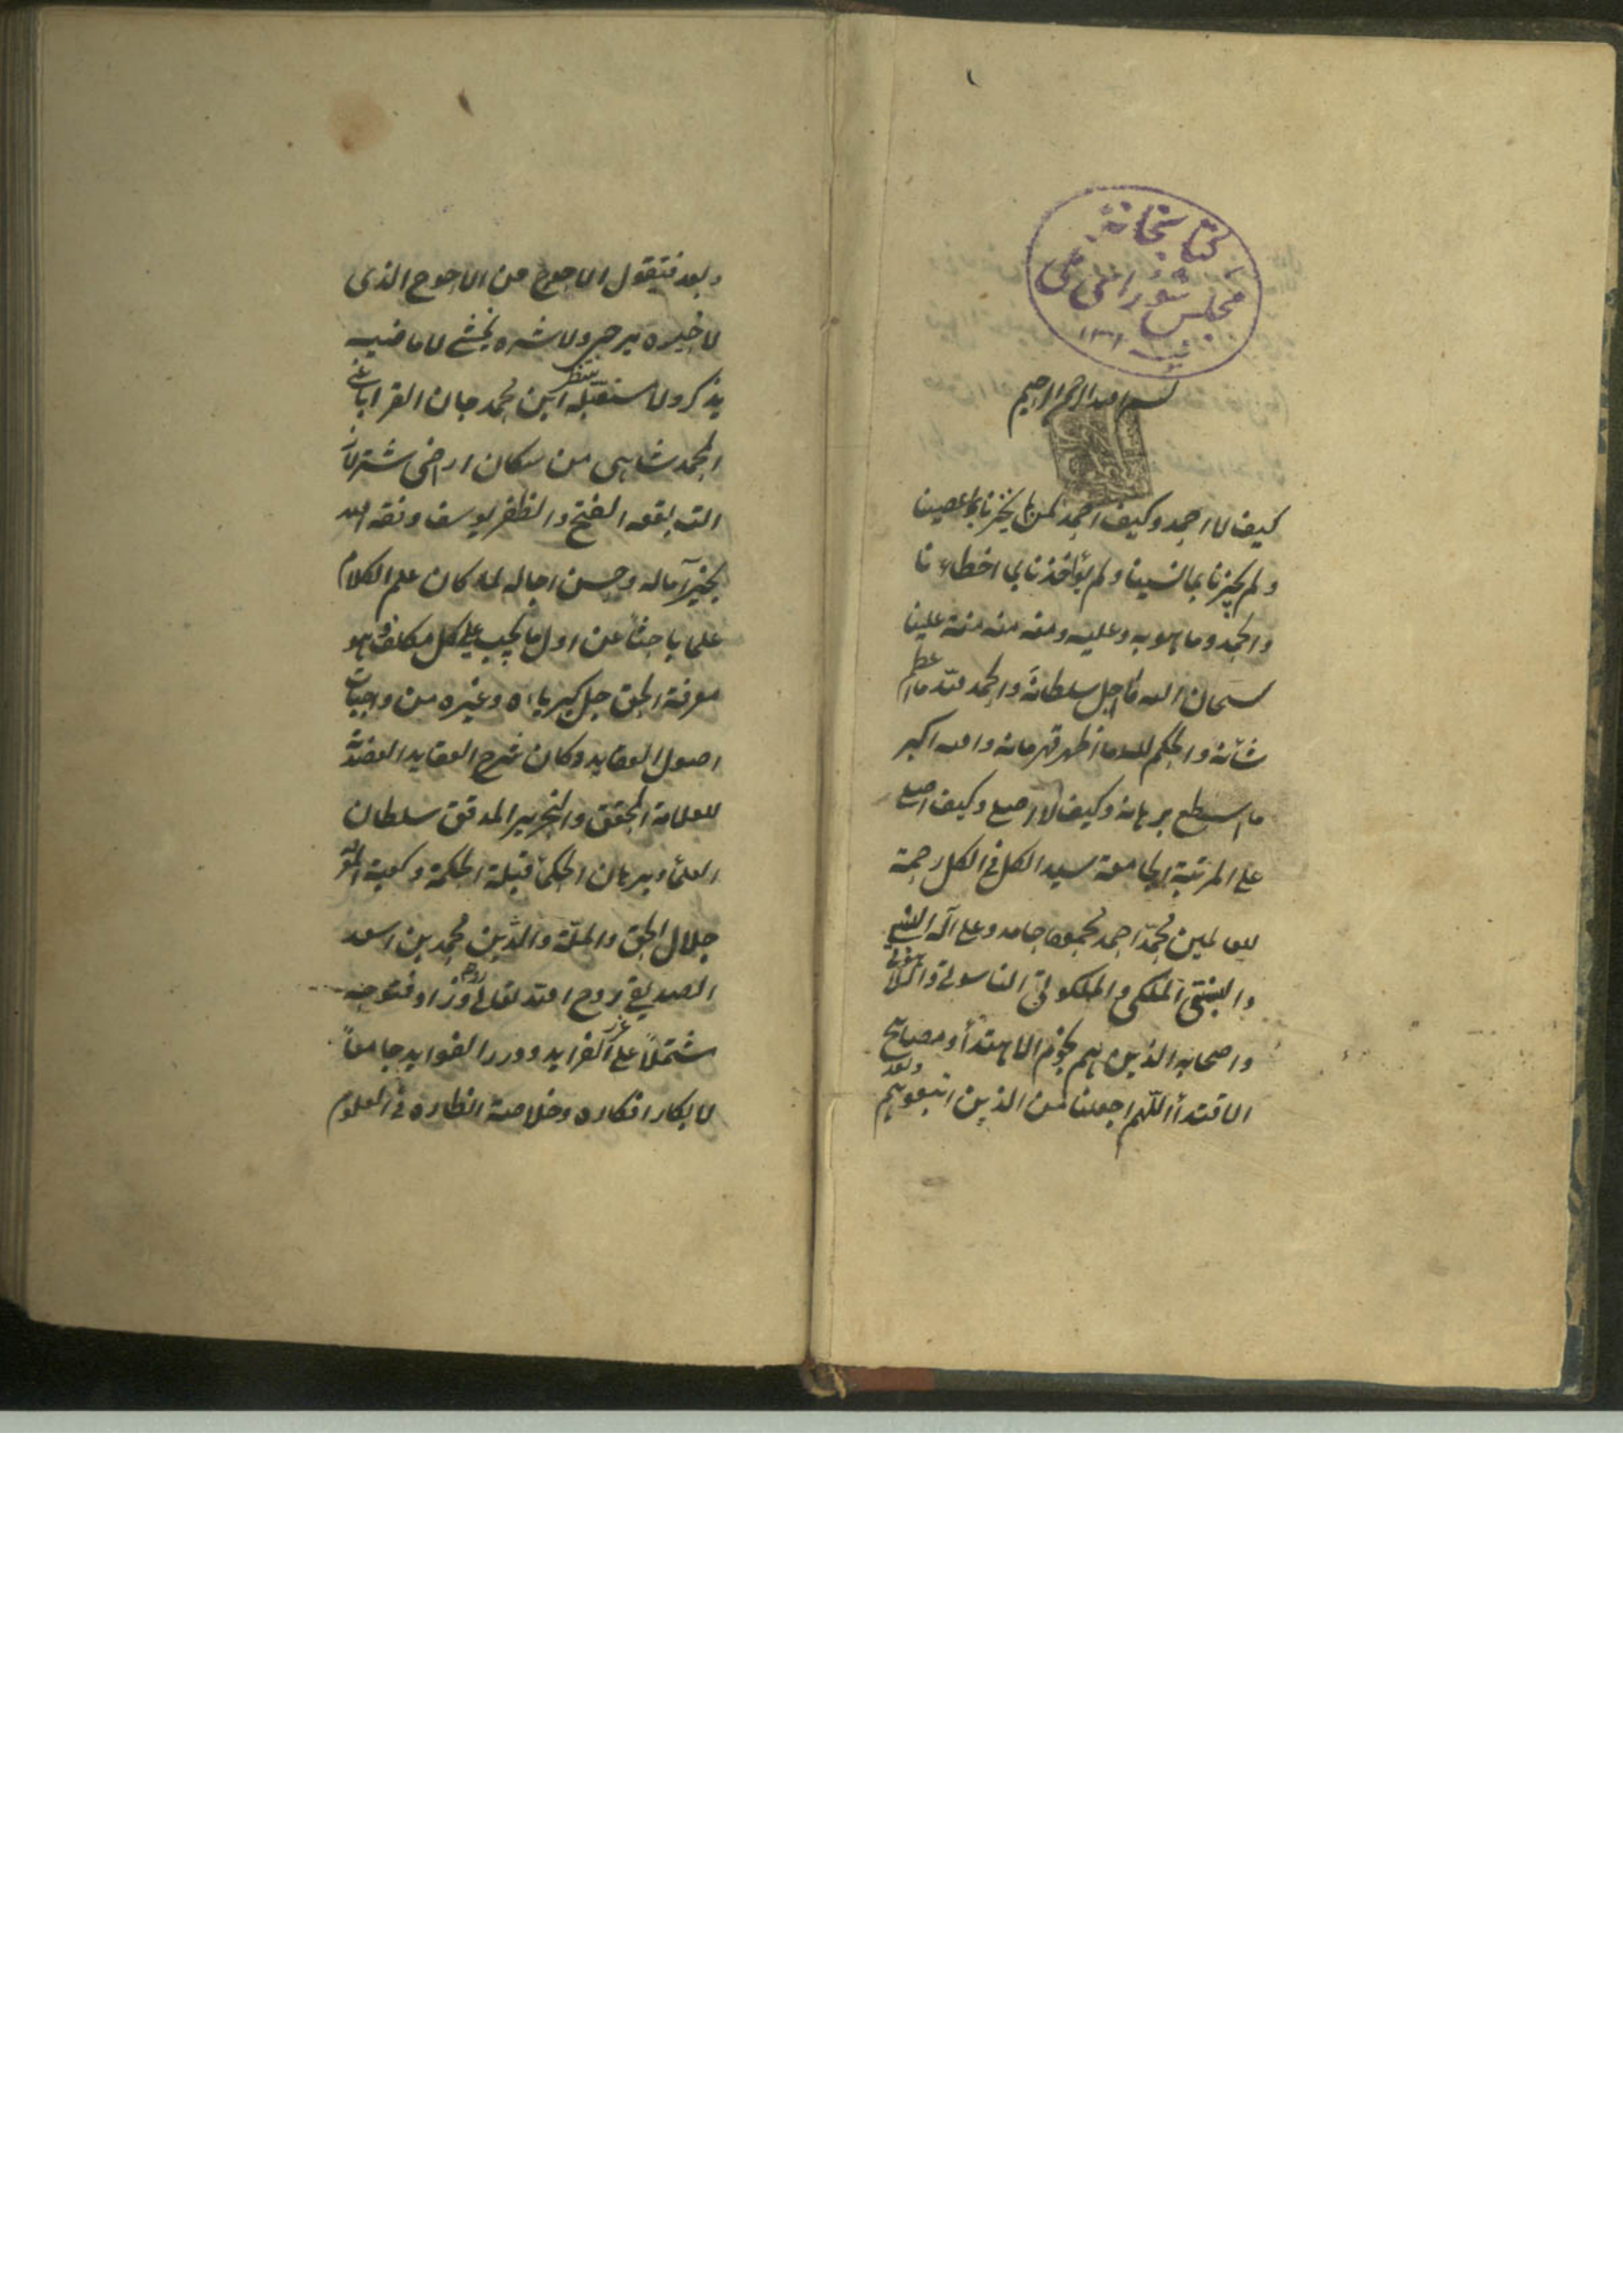 كتابخانهٔ
مجلس شورای ملی
بسم الله الرحمن الرحيم
كيف لا احمد وكيف احمد لمن لم يخزنا بما عصينا
ولم يجزنا بما نسينا ولم يؤاخذنا بما اخطاء نا
والحمد وما هو به وعليه ومنه منه منة علينا
سبحان الله ما اجل سلطانه والحمد لله ما اعظم
شانه والحكم لله ما اظهر قهرمانه والله اكبر
ما اسطع برهانه وكيف لا اصلى وكيف اصلى
على المرتبة الجامعة سيد الكل فى الكل رحمة
للعالمين محمد احمد محمود حامد وعلى آله
والملكى والملكوتى الناسوتى
واصحابه الذين هم نجوم الاهتداء و مصابيح
الاقتداء اللهم اجعلنا من الذين اتبعوهم
وبعد
وبعد فيقول الاحوج من الاحوج الذى
لا خيره يرجى ولا شره يخشى لا ماضيه
يذكر ولا مستقبله ينتظر ابن محمد جان القراباغى
المحمدشاهى من سكان اراضى
الفتح والظفر يوسف وفقه الله
بخير آماله وحسن اعماله لما كان علم الكلام
علما باحثا عن اول ما يجب على كل مكلف وهو
معرفة الحق جل كبرياءه وغيره من واجبات
اصول العقايد وكان شرح العقايد العضدية
للعلامة المحقق والنحرير المدقق سلطان
العلماء وبرهان الحكماء قبلة الحكمة وكعبة
جلال الحق والملة والدين محمد بن اسعد
الصديقى روح الله تعالى روحه وزاد فتوحه
مشتملاً على غرر الفرايد ودرر الفوايد جامعاً
لابكار افكاره وخلاصة انظاره فى العلوم